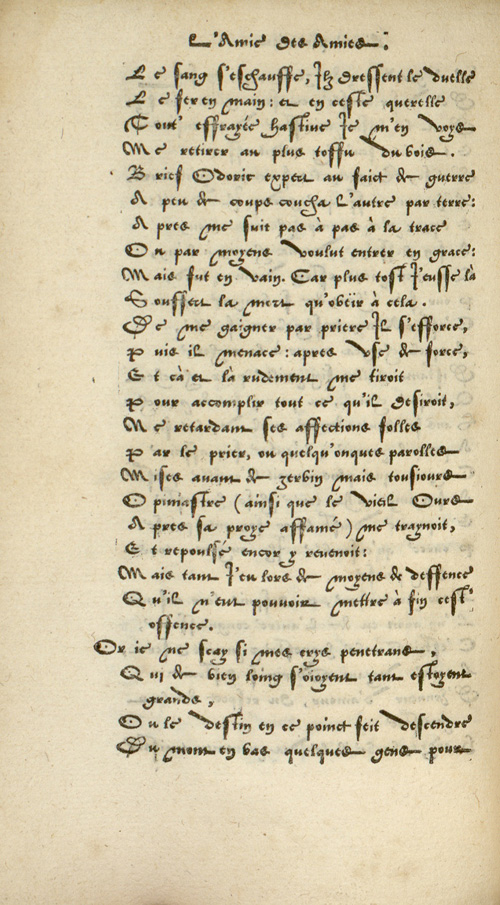 L'Amie des Amies.
Le sang s'eschauffe, Ilz dressent le duelle
Le fer en main: et en ceste querelle
Tout' effrayée hastiue Je m'en voys
Me retirer au plus toffu du bois.
Brief Odoric expert au faict de guerre
A peu de coups coucha L'autre par terre:
Apres me suit pas à pas à la trace
On par moyens voulut entrer en grace:
Mais fut en vain. Car plus tost J'eusse là
Souffert la mort qu'obeïr à cela.
De me gaigner par priere Il s'efforce,
Puis il menace: apres vse de force,
Et cà et là rudement me tiroit
Pour accomplir tout ce qu'il desiroit,
Me retardant ses affections folles
Par le prier, ou quelqu'onques parolles
Mises auant de zerbin mais tousiours
Opiniastre (ainsi que le vieil Ours
Apres sa proye affamé) me traynoit,
Et repoulsé encor y reuenoit:
Mais tant J'eu lors de moyens de deffence
Qu'il n'eut pouuoir mettre à fin cest'
offence.
Or ie ne scay si mes crys penetrans,
Qui de bien loing s'oioyent tant estoyent
grands,
Ou le destin en ce poinct feit descendre
Du mont en bas quelques gens pour